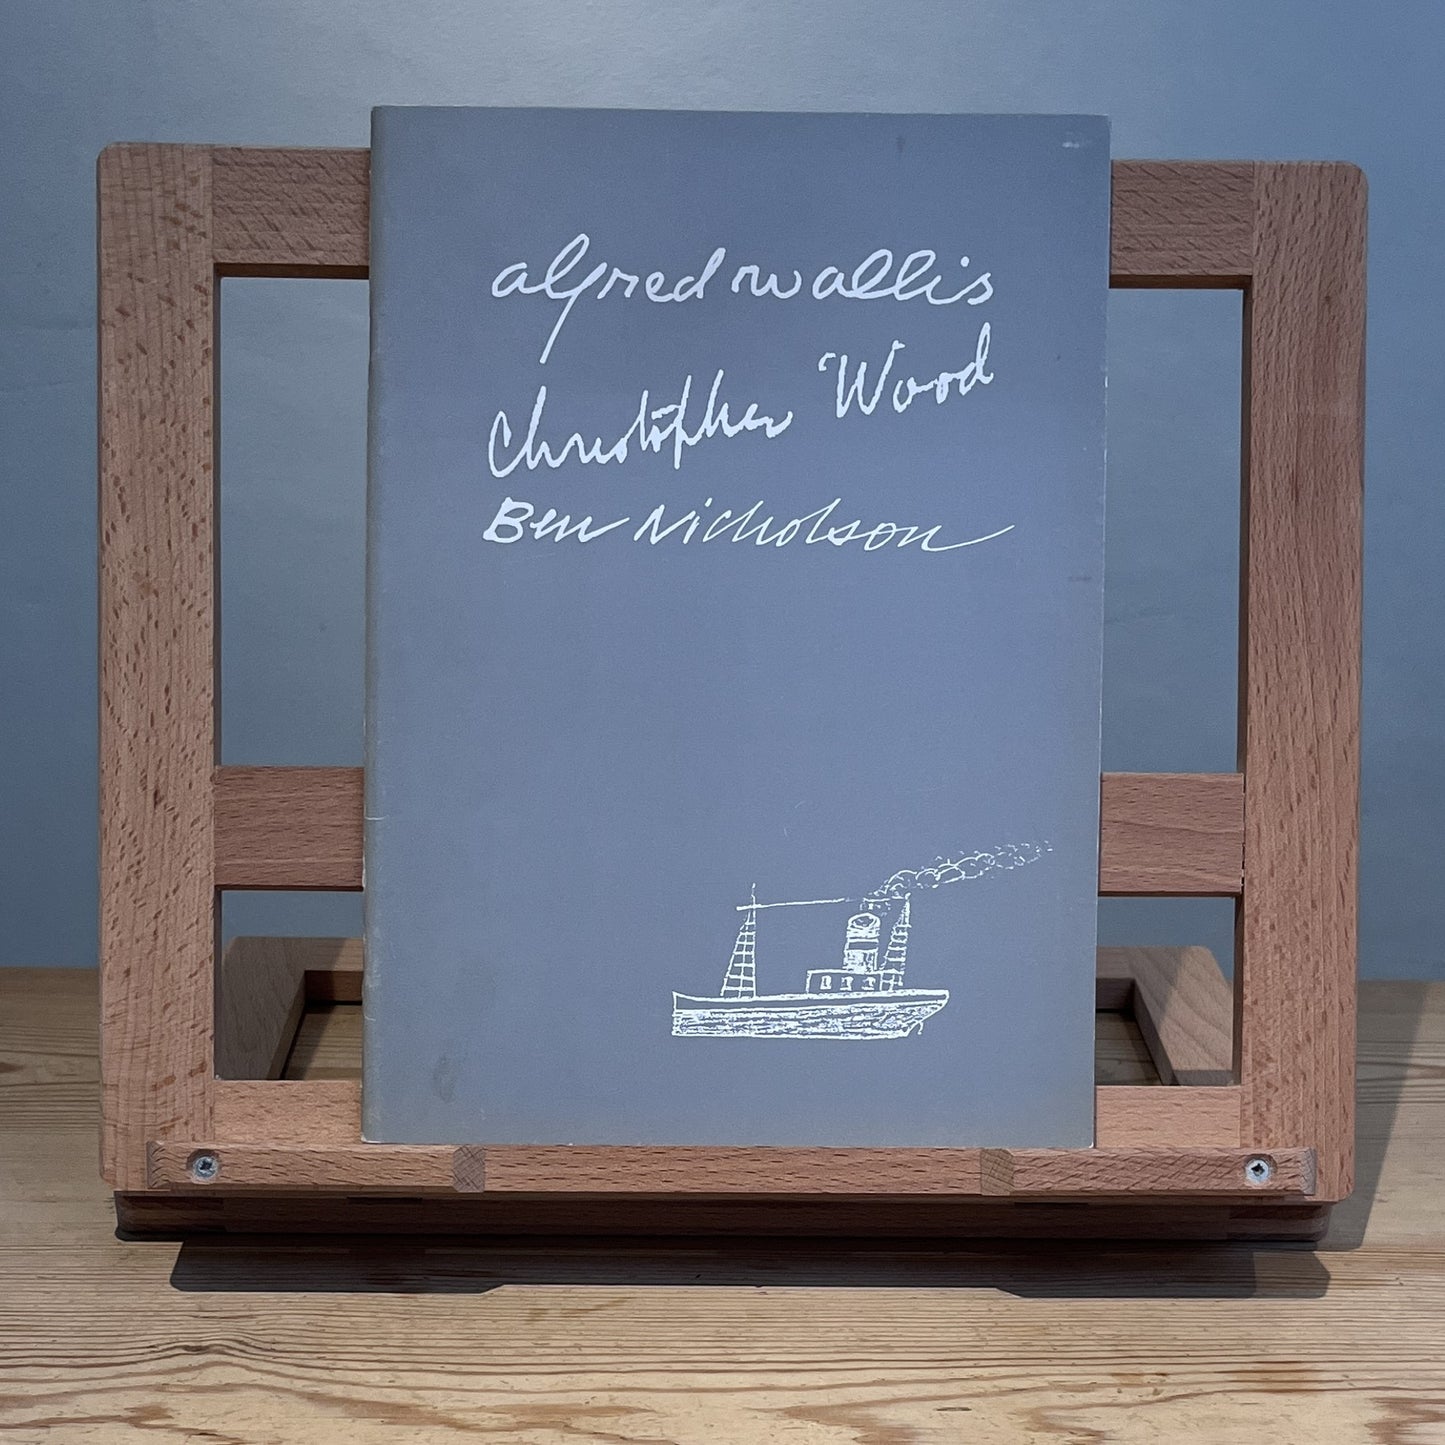 alfred wallis
Christopher Wood
Ben Nicholson